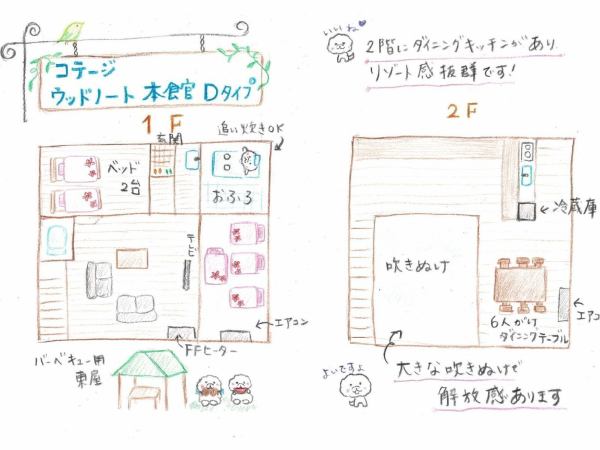 コテージ
ウッドノート 本食官 Dタイプ
1F
玄関
追い炊きOK
ベッド
2台
おふろ
テレビ
エアコン
FFヒーター
バーベキュー用
東屋
いいね
2階にダイニングキッチンがあり
リゾート感抜群です!
2F
冷蔵庫
吹きぬけ
6人がけ
ダイニングテーブル
エアコ
よいですよ
大きな吹きぬけで
解放感あります